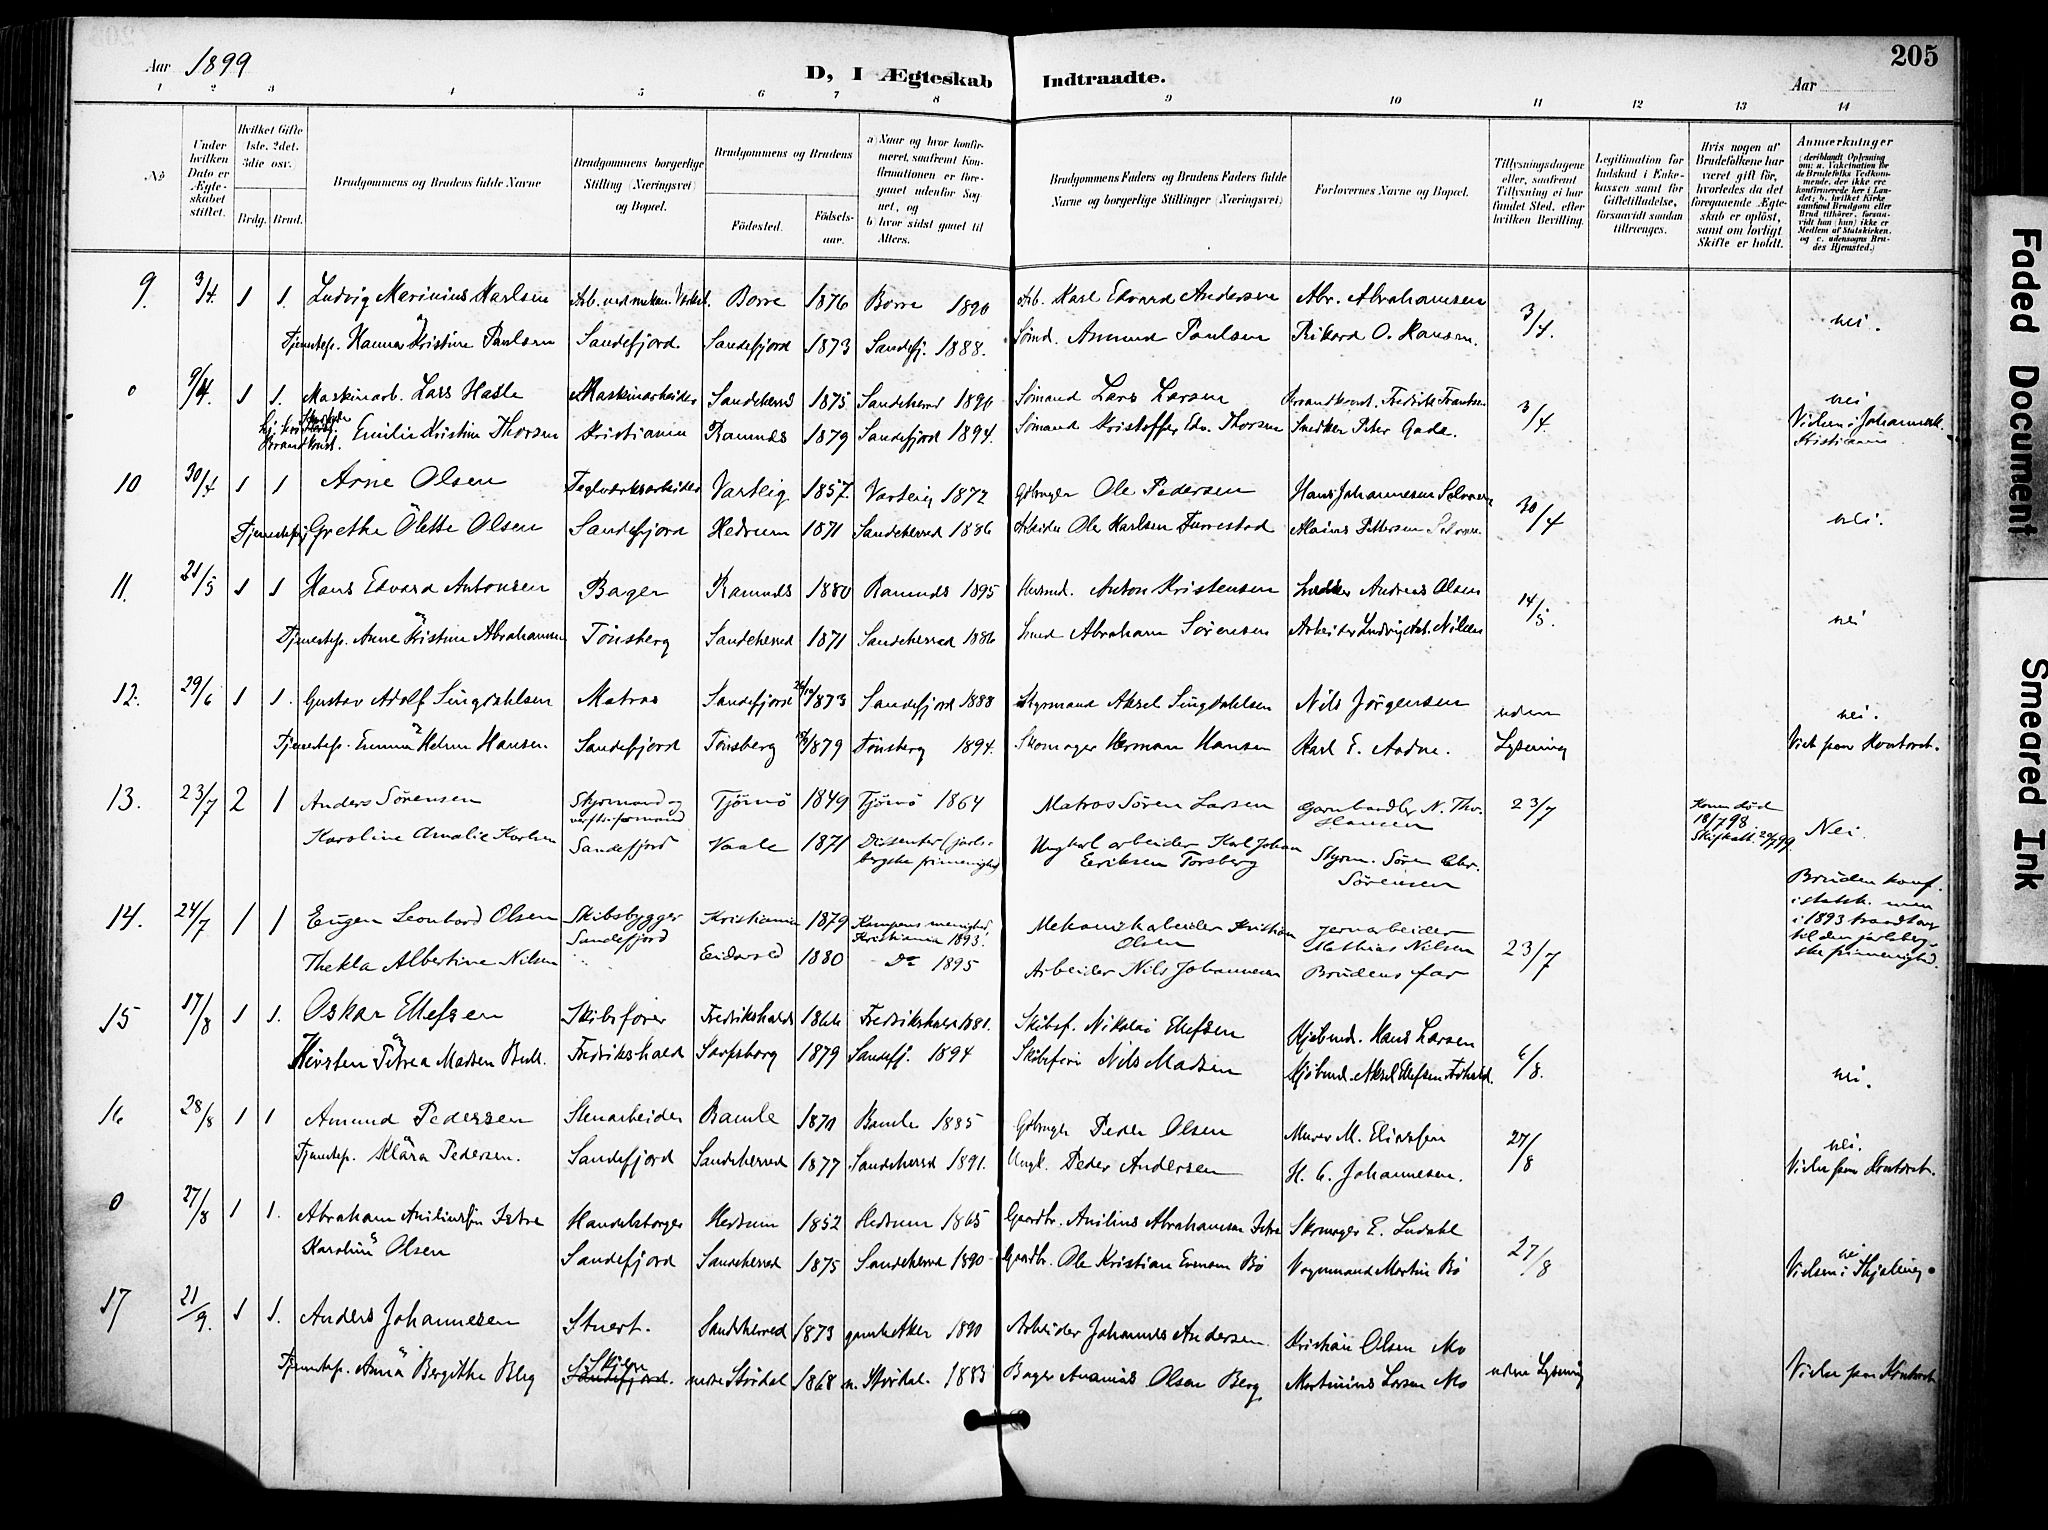 205
Aar 1899
D, I Ægteskab Indtraadte.
Aar
1 2 3 4 5 6 7 8 9 10 11 12 13 14
No
Under hvilken Dato er Ægteskabet stiftet.
Hvilket Gifte 1ste, 2det, 3die osv.
Brdg. Brud.
Brudgommens og Brudens fulde Navne
Brudgommens borgerlige Stilling (Næringsvei) og Bopæl.
Brudgommens og Brudens
Fødested. Fødselsaar.
a) Naar og hvor konfirmeret, saafremt Konfirmationen er foregaaet udenfor Sognet, og
b) hvor sidst gaaet til Alters.
Brudgommens Faders og Brudens Faders fulde Navne og borgerlige Stillinger (Næringsvei)
Forlovernes Navne og Bopæl.
Tillysningsdagene eller, saafremt Tillysning ei har fundet Sted, efter hvilken Bevilling.
Legitimation for Indskud i Enkekassen samt for Giftetilladelse, forsaavidt saadan tiltrænges.
Hvis nogen af Brudefolkene har været gift før, hvorledes da det foregaaende Ægteskab er opløst, samt om lovligt Skifte er holdt.
Anmærkninger
9. 3/4. 1 1. Ludvig Marinius Karlsen Arb. ved mekan. Verkst. Borre 1876 Borre 1890 Arb. Karl Edvard Andersen Abr. Abrahamsen 3/4. nei.
Tjenestep. Hanna Kristine Paulsen Sandefjord. Sandefjord 1873 Sandefj. 1888. Sømd. Amund Paulsen Rikard O. Hansen.
0 9/4. 1 1. Maskinarb. Lars Hasle Maskinarbeider Sandeherred 1875 Sandeherred 1890 Sømand Lars Larsen Fredrik Frantsen 3/4. nei
Emilie Kristine Thorsen Kristiania Ramnes 1879 Sandefjord 1894. Sømand Kristoffer Edv. Thorsen Snedker Peter Gade. Vielsen i Johannesk. Kristiania
10 30/4 1 1 Arne Olsen Teglverksarbeider Varteig 1857. Varteig 1872 Gdbruger Ole Pedersen Hans Johannesen 30/4 nei.
Tjenestepi. Grethe Olette Olsen Sandefjord Hedrum 1871 Sandeherred 1886 Arbeider Ole Karlsen Furrestad Pettersen
11. 21/5 1 1 Hans Edvard Antonsen Bager Ramnes 1880 Ramnes 1895 Husmd. Anton Kristensen Andreas Olsen 14/5. nei
Tjenestep. Anne Kristine Abrahamsen Tönsberg Sandeherred 1871 Sandeherred 1886 Smed Abraham Sörensen Arbeider Ludvig Ant. Nilsen
12. 29/6 1 1. Gustav Adolf Lingdahlsen Matros Sandefjord 1873 Sandefjord 1888 Styrmand Aksel Lingdahlsen Nils Jörgensen uden Lysning nei.
Tjenestep. Emma Helene Hansen. Sandefjord Tönsberg 1879 Tönsberg 1894. Skomager Herman Hansen Karl E. Aadne. Viet paa Kontoret.
13. 23/7 2 1 Anders Sörensen Styrmand og verftsformand Tjömö 1849 Tjömö 1864 Matros Sören Larsen Garnhandler N. Thv. Hansen 23/7 Konen död 18/7 98. Nei.
Karoline Amalie Karlsen Sandefjord Vaale 1871 Dissenter (jarlsbergske frimenighed) Ungkarl arbeider Karl Johan Eriksen Torsberg Styrm. Sören Chr. Sörensen
14. 24/7 1 1 Eugen Leonhard Olsen Skibsbygger Sandefjord Kristiania 1879 Kampens menighed, Kristiania 1893. Mekanisk arbeider Kristian Olsen jernarbeider Mathias Nilsen 23/7
Thekla Albertine Nilsen Eidsvold 1880 Do 1895 Arbeider Nils Johannesen Brudens far
Bruden konf. i statsk. men i 1893 traadt over til den jarlsbergske frimenighed.
15 17/8 1 1. Oskar Ellefsen Skibsfører Fredrikshald 1866 Fredrikshald 1881. Skibsf. Nikolai Ellefsen Kjöbmd. Hans Larsen 6/8. nei.
Kirsten Petrea Madsen Bull. Fredrikshald Sarpsborg 1879 Sandefj. 1894 Skibsförer Nils Madsen Kjöbmd. Aksel Ellefsen F.hald.
16 28/8 1 1 Amund Pedersen Stenarbeider Bamle 1870 Bamle 1885 Gdbruger Peder Olsen Murer M. Eliassen 27/8 nei.
Tjenestep. Klara Pedersen. Sandefjord Sandeherred 1877 Sandeherred 1891. Ungk. Peder Andersen H. C. Johannesen. Viet paa Kontoret.
0 27/8 1 1. Abraham Anilius Istre Handelsborger Hedrum 1852 Hedrum 1865 Gaardbr. Anilius Abrahamsen Istre Skomager E. Lindahl 27/8 nei
Karoline Olsen Sandefjord Sandeherred 1875 Sandeherred 1890 Gaardbr. Ole Kristian Evensen Bö Vognmand Martin Bö Vielsen i Skjeberg.
17 21/9. 1 1. Anders Johannesen Stuert. Sandeherred 1873 Aker 1890 Arbeider Johannes Andersen Kristian Olsen Mo uden Lysning
Tjenestep. Anna Bergithe Berg Sandefjord. nedre Stördal 1868 n. Stördal. 1883 Bager Ananias Olsen Berg Martinius Larsen Mo Viet paa Kontoret
Faded Document
Smeared Ink